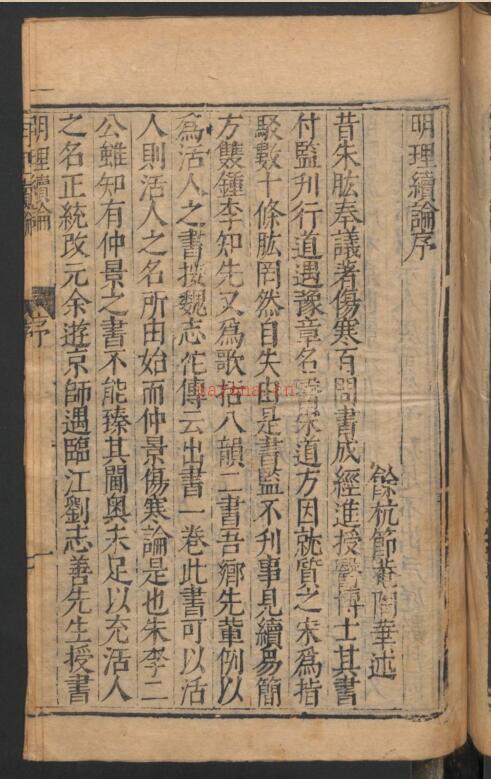 明理續論序
餘杭節菴陶華述
昔朱肱奉議著傷寒百問書成經進授醫博士其書
付監刋行道遇豫章名醫宋道方因就質之宋爲指
駁數十條肱罔然自失由是書監不刋事見續易簡
方雙鍾李知先又爲歌括八韻二書吾鄉先軰例以
爲活人之書按魏志佗傳云出書一卷此書可以活
人則活人之名所由始而仲景傷寒論是也朱李二
公雖知有仲景之書不能臻其閫奥未足以充活人
之名正統改元余遊京師遇臨江劉志善先生授書
明理續論
序
一